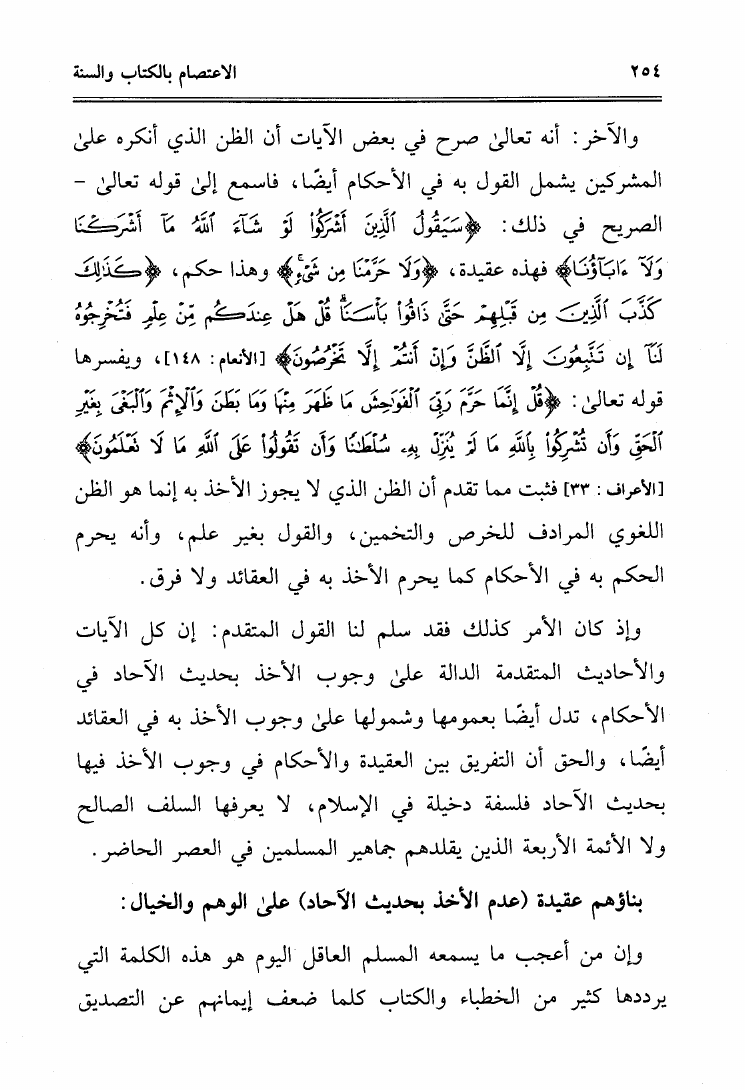 ٢٥٤
الاعتصام بالكتاب والسنة
والآخر: أنه تعالىٰ صرح في بعض الآيات أن الظن الذي أنكره علىٰ
المشركين يشمل القول به في الأحكام أيضًا، فاسمع إلىٰ قوله تعالىٰ -
الصريح في ذلك: ﴿سَيَقُولُ ٱلَّذِينَ أَشْرَكُوا۟ لَوْ شَآءَ ٱللَّهُ مَآ أَشْرَكْنَا
وَلَآ ءَابَآؤُنَا﴾ فهذه عقيدة، ﴿وَلَا حَرَّمْنَا مِن شَىْءٍۚ﴾ وهذا حكم، ﴿كَذَٰلِكَ
كَذَّبَ ٱلَّذِينَ مِن قَبْلِهِمْ حَتَّىٰ ذَاقُوا۟ بَأْسَنَاۗ قُلْ هَلْ عِندَكُم مِّنْ عِلْمٍ فَتُخْرِجُوهُ
لَنَآ إِن تَتَّبِعُونَ إِلَّا ٱلظَّنَّ وَإِنْ أَنتُمْ إِلَّا تَخْرُصُونَ﴾ [الأنعام: ١٤٨]، ويفسرها
قوله تعالىٰ: ﴿قُلْ إِنَّمَا حَرَّمَ رَبِّىَ ٱلْفَوَٰحِشَ مَا ظَهَرَ مِنْهَا وَمَا بَطَنَ وَٱلْإِثْمَ وَٱلْبَغْىَ بِغَيْرِ
ٱلْحَقِّ وَأَن تُشْرِكُوا۟ بِٱللَّهِ مَا لَمْ يُنَزِّلْ بِهِۦ سُلْطَٰنًا وَأَن تَقُولُوا۟ عَلَى ٱللَّهِ مَا لَا تَعْلَمُونَ﴾
[الأعراف: ٣٣] فثبت مما تقدم أن الظن الذي لا يجوز الأخذ به إنما هو الظن
اللغوي المرادف للخرص والتخمين، والقول بغير علم، وأنه يحرم
الحكم به في الأحكام كما يحرم الأخذ به في العقائد ولا فرق.
وإذ كان الأمر كذلك فقد سلم لنا القول المتقدم: إن كل الآيات
والأحاديث المتقدمة الدالة علىٰ وجوب الأخذ بحديث الآحاد في
الأحكام، تدل أيضًا بعمومها وشمولها علىٰ وجوب الأخذ به في العقائد
أيضًا، والحق أن التفريق بين العقيدة والأحكام في وجوب الأخذ فيها
بحديث الآحاد فلسفة دخيلة في الإسلام، لا يعرفها السلف الصالح
ولا الأئمة الأربعة الذين يقلدهم جماهير المسلمين في العصر الحاضر.
بناؤهم عقيدة (عدم الأخذ بحديث الآحاد) علىٰ الوهم والخيال:
وإن من أعجب ما يسمعه المسلم العاقل اليوم هو هذه الكلمة التي
يرددها كثير من الخطباء والكتاب كلما ضعف إيمانهم عن التصديق